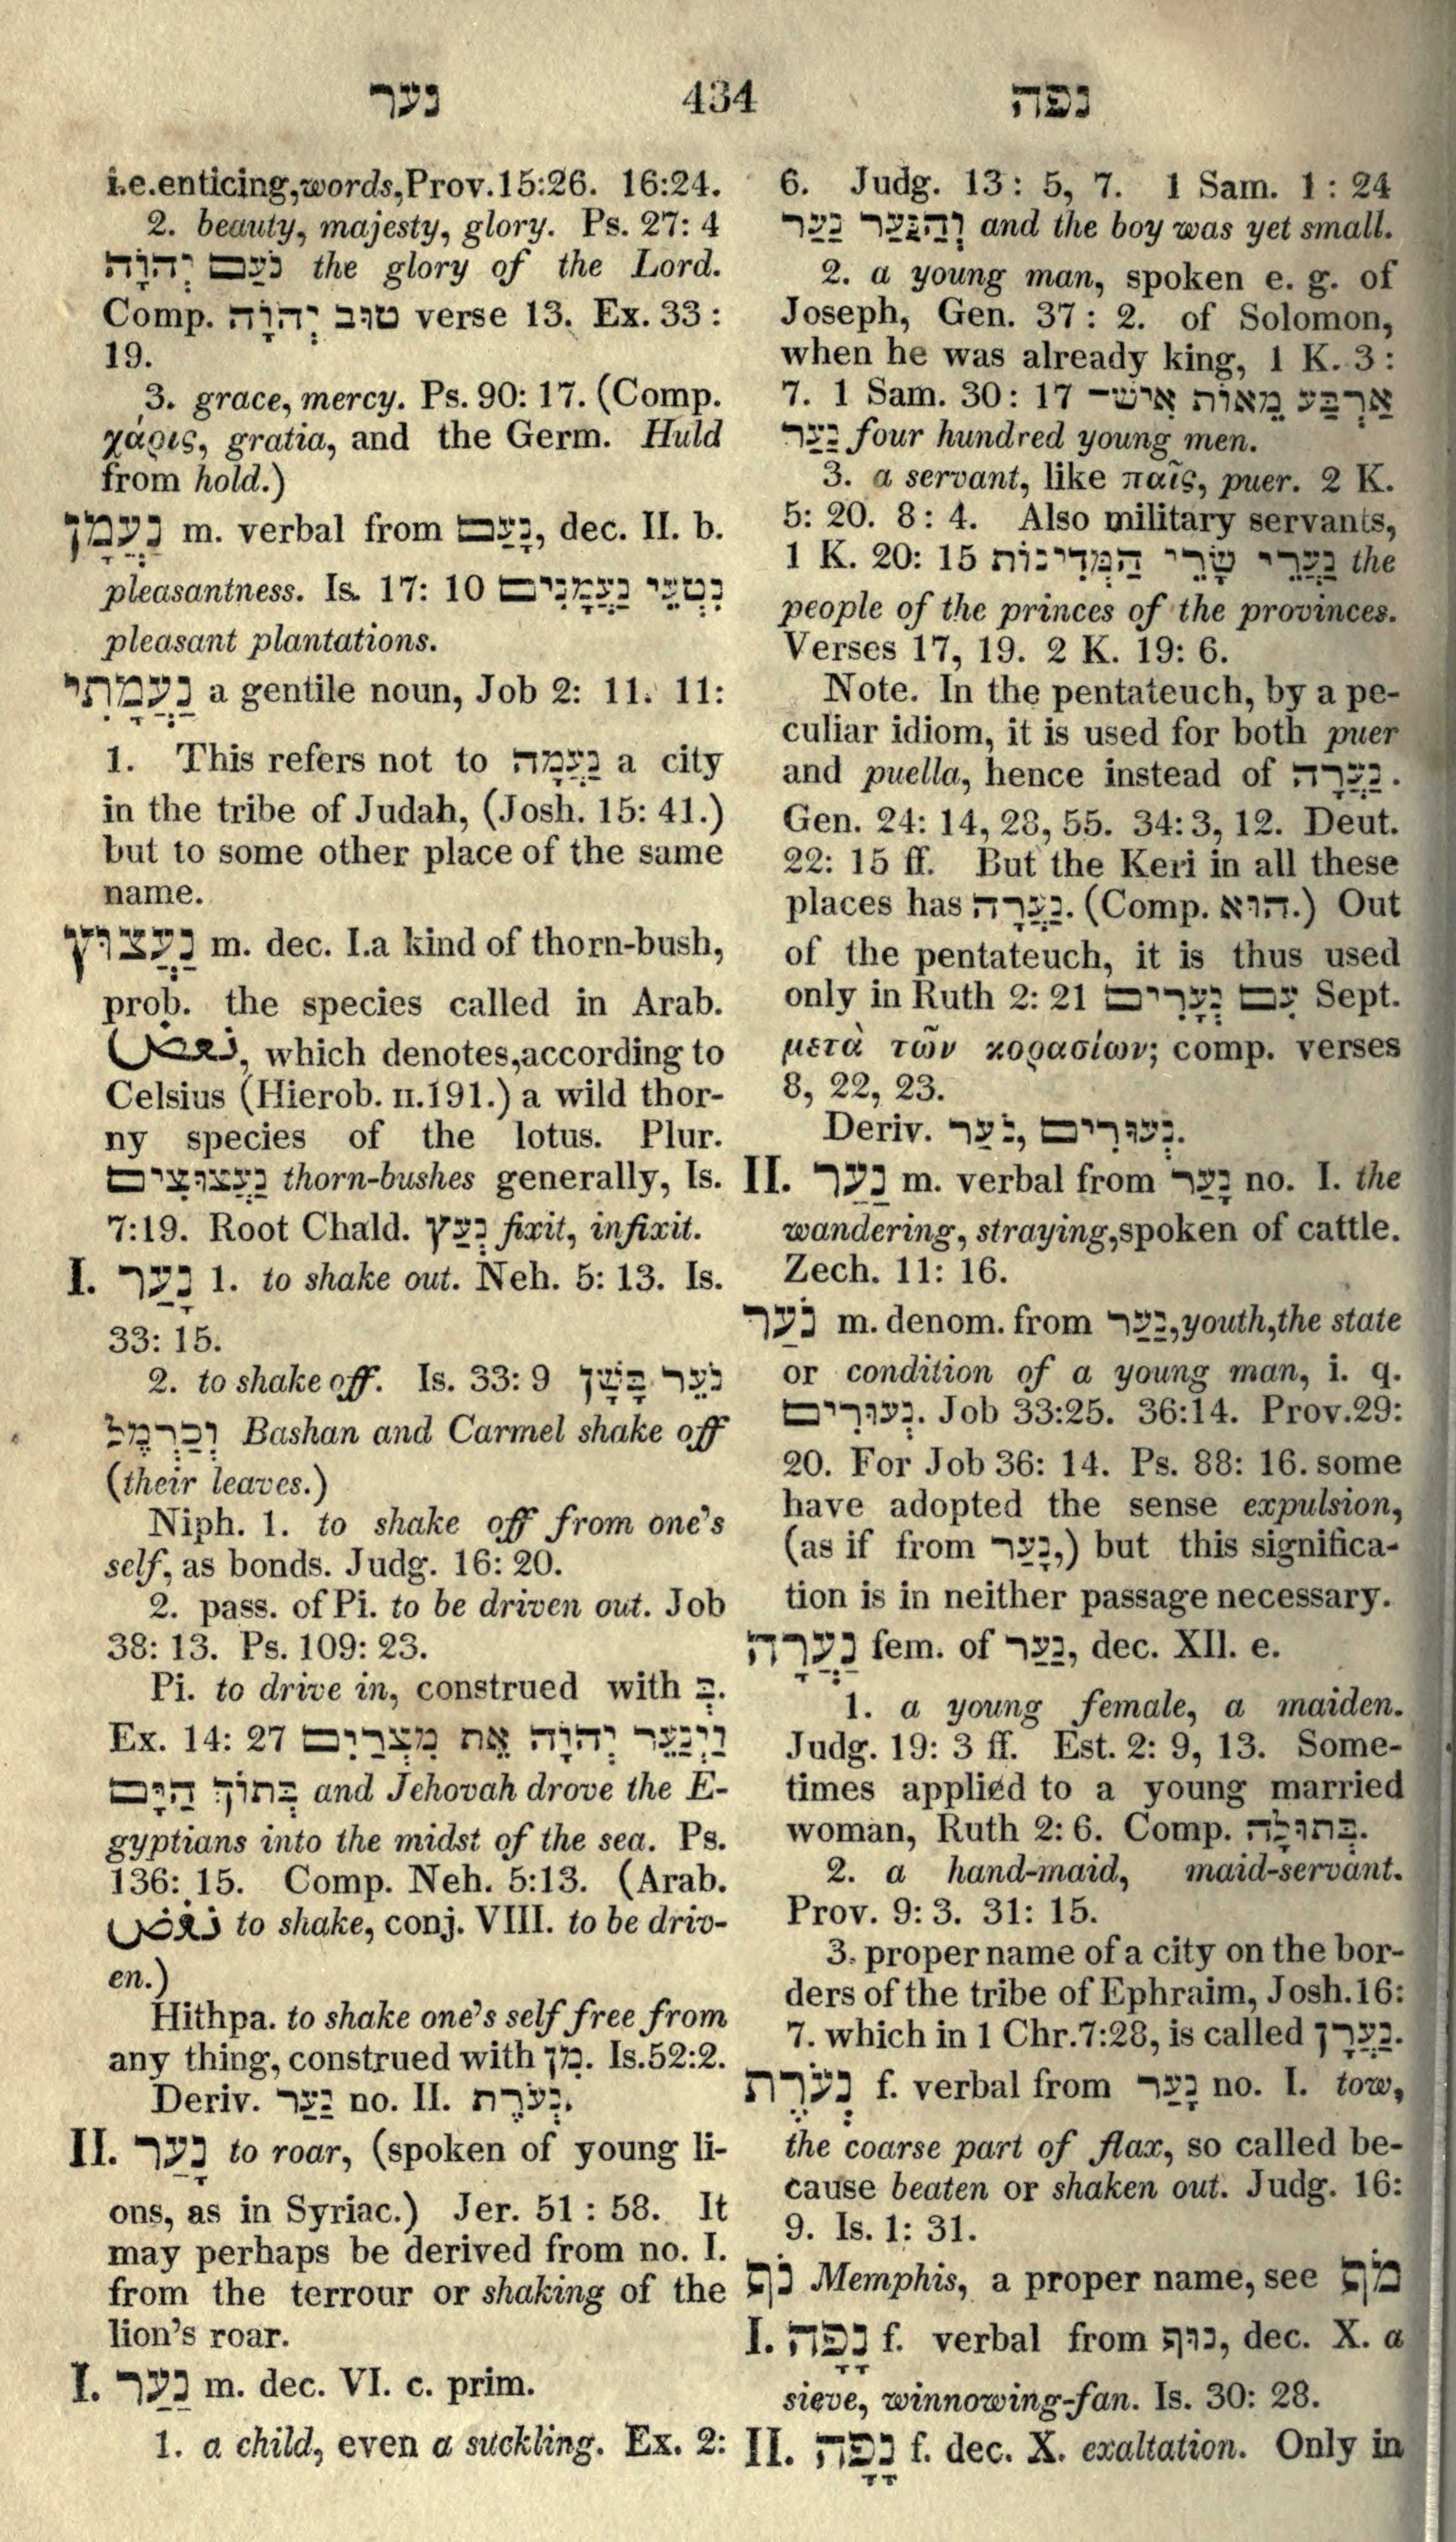 נער 434 נפה
i.e. enticing, words, Prov. 15:26. 16:24.
2. beauty, majesty, glory. Ps. 27: 4
נֹעַם יְהוָֹה the glory of the Lord.
Comp. טוּב יְהוָֹה verse 13. Ex. 33:
19.
3. grace, mercy. Ps. 90: 17. (Comp.
χάρις, gratia, and the Germ. Huld
from hold.)
נַעֲמָן m. verbal from נָעֵם, dec. II. b.
pleasantness. Is. 17: 10 נִטְעֵי נַעֲמָנִים
pleasant plantations.
נַעֲמָתִי a gentile noun, Job 2: 11. 11:
1. This refers not to נַעֲמָה a city
in the tribe of Judah, (Josh. 15: 41.)
but to some other place of the same
name.
נַעֲצוּץ m. dec. I. a kind of thorn-bush,
prob. the species called in Arab.
نعض, which denotes, according to
Celsius (Hierob. II. 191.) a wild thor-
ny species of the lotus. Plur.
נַעֲצוּצִים thorn-bushes generally, Is.
7:19. Root Chald. נְעַץ fixit, infixit.
I. נָעַר 1. to shake out. Neh. 5: 13. Is.
33: 15.
2. to shake off. Is. 33: 9 נֹעֵר בָּשָׁן
וְכַרְמֶל Bashan and Carmel shake off
(their leaves.)
Niph. 1. to shake off from one's
self, as bonds. Judg. 16: 20.
2. pass. of Pi. to be driven out. Job
38: 13. Ps. 109: 23.
Pi. to drive in, construed with בְּ.
Ex. 14: 27 וַיְנַעֵר יְהוָֹה אֵת מִצְרַיִם
בְּתוֹךְ הַיָּם and Jehovah drove the E-
gyptians into the midst of the sea. Ps.
136: 15. Comp. Neh. 5:13. (Arab.
نغض to shake, conj. VIII. to be driv-
en.)
Hithpa. to shake one's self free from
any thing, construed with מִן. Is. 52:2.
Deriv. נַעַר no. II. נְעֹרֶת.
II. נָעַר to roar, (spoken of young li-
ons, as in Syriac.) Jer. 51 : 58. It
may perhaps be derived from no. I.
from the terrour or shaking of the
lion's roar.
I. נַעַר m. dec. VI. c. prim.
1. a child, even a suckling. Ex. 2:
6. Judg. 13: 5, 7. 1 Sam. 1: 24
וְהַנַּעַר נַעַר and the boy was yet small.
2. a young man, spoken e. g. of
Joseph, Gen. 37: 2. of Solomon,
when he was already king, 1 K. 3:
7. 1 Sam. 30: 17 אַרְבַּע מֵאוֹת אִישׁ־
נַעַר four hundred young men.
3. a servant, like παῖς, puer. 2 K.
5: 20. 8: 4. Also military servants,
1 K. 20: 15 נַעֲרֵי שָׂרֵי הַמְּדִינוֹת the
people of the princes of the provinces.
Verses 17, 19. 2 K. 19: 6.
Note. In the pentateuch, by a pe-
culiar idiom, it is used for both puer
and puella, hence instead of נַעֲרָה.
Gen. 24: 14, 28, 55. 34: 3, 12. Deut.
22: 15 ff. But the Keri in all these
places has נַעֲרָה. (Comp. הוּא.) Out
of the pentateuch, it is thus used
only in Ruth 2: 21 עִם נְעָרִים Sept.
μετὰ τῶν κορασίων; comp. verses
8, 22, 23.
Deriv. נֹעַר, נְעוּרִים.
II. נַעַר m. verbal from נָעַר no. I. the
wandering, straying, spoken of cattle.
Zech. 11: 16.
נֹעַר m. denom. from נַעַר, youth, the state
or condition of a young man, i. q.
נְעוּרִים. Job 33:25. 36:14. Prov. 29:
20. For Job 36: 14. Ps. 88: 16. some
have adopted the sense expulsion,
(as if from נָעַר,) but this significa-
tion is in neither passage necessary.
נַעֲרָה fem. of נַעַר, dec. XII. e.
1. a young female, a maiden.
Judg. 19: 3 ff. Est. 2: 9, 13. Some-
times applied to a young married
woman, Ruth 2: 6. Comp. בְּתוּלָה.
2. a hand-maid, maid-servant.
Prov. 9: 3. 31: 15.
3. proper name of a city on the bor-
ders of the tribe of Ephraim, Josh. 16:
7. which in 1 Chr. 7:28, is called נַעֲרָן.
נְעֹרֶת f. verbal from נָעַר no. I. tow,
the coarse part of flax, so called be-
cause beaten or shaken out. Judg. 16:
9. Is. 1: 31.
נֹף Memphis, a proper name, see מֹף
I. נָפָה f. verbal from נוּף, dec. X. a
sieve, winnowing-fan. Is. 30: 28.
II. נָפָה f. dec. X. exaltation. Only in